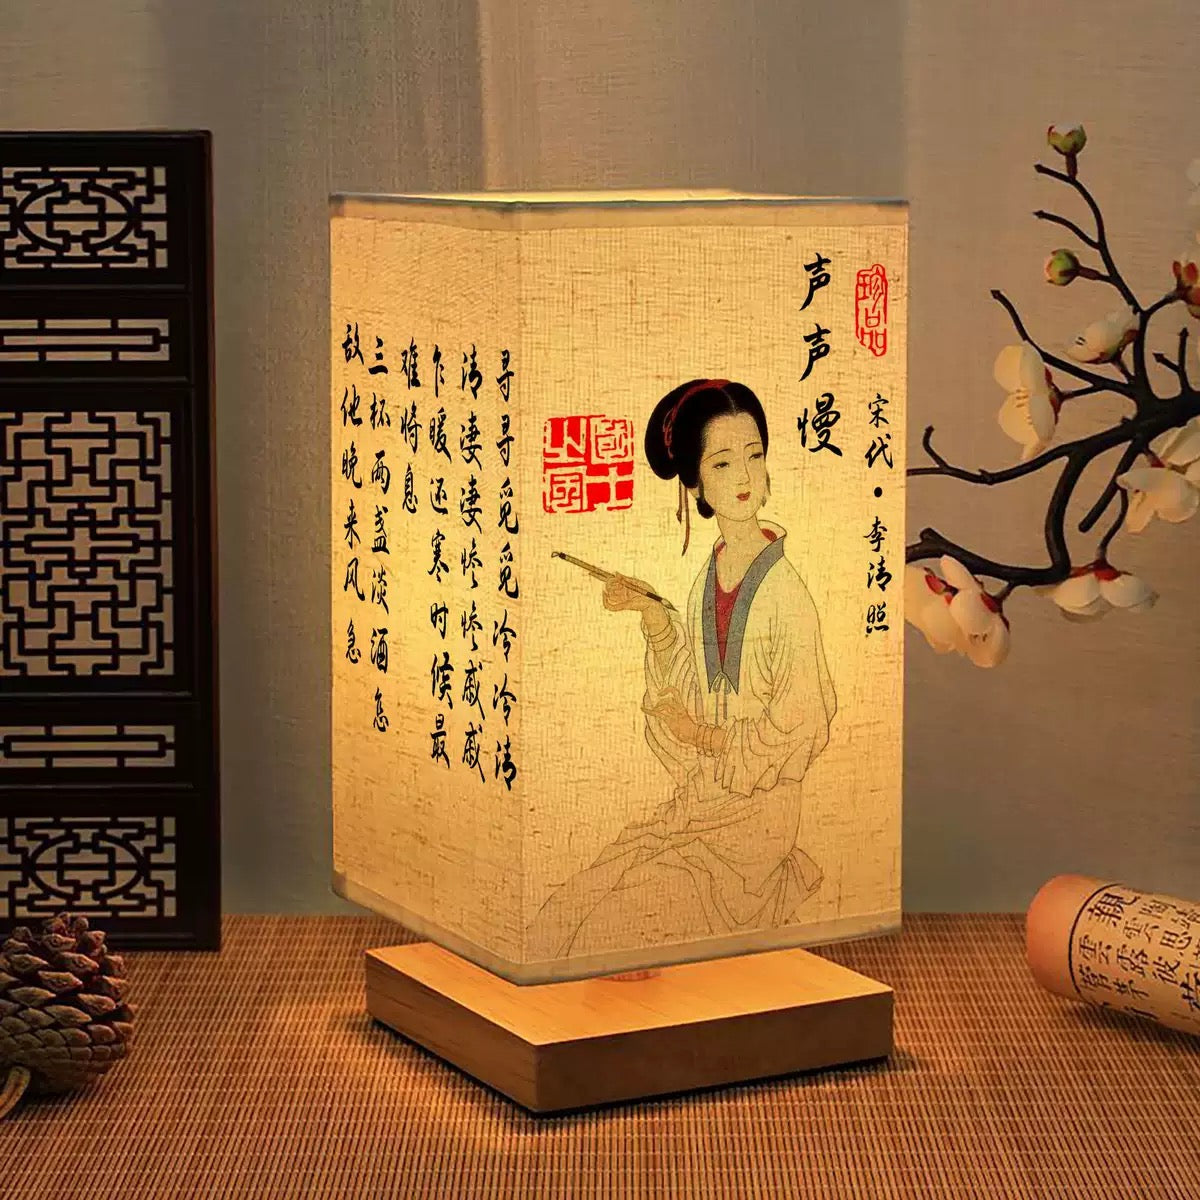 声声慢
宋代·李清照
珍品
国士之风
寻寻觅觅冷冷清
清凄凄惨惨戚戚
乍暖还寒时候最
难将息
三杯两盏淡酒怎
敌他晚来风急